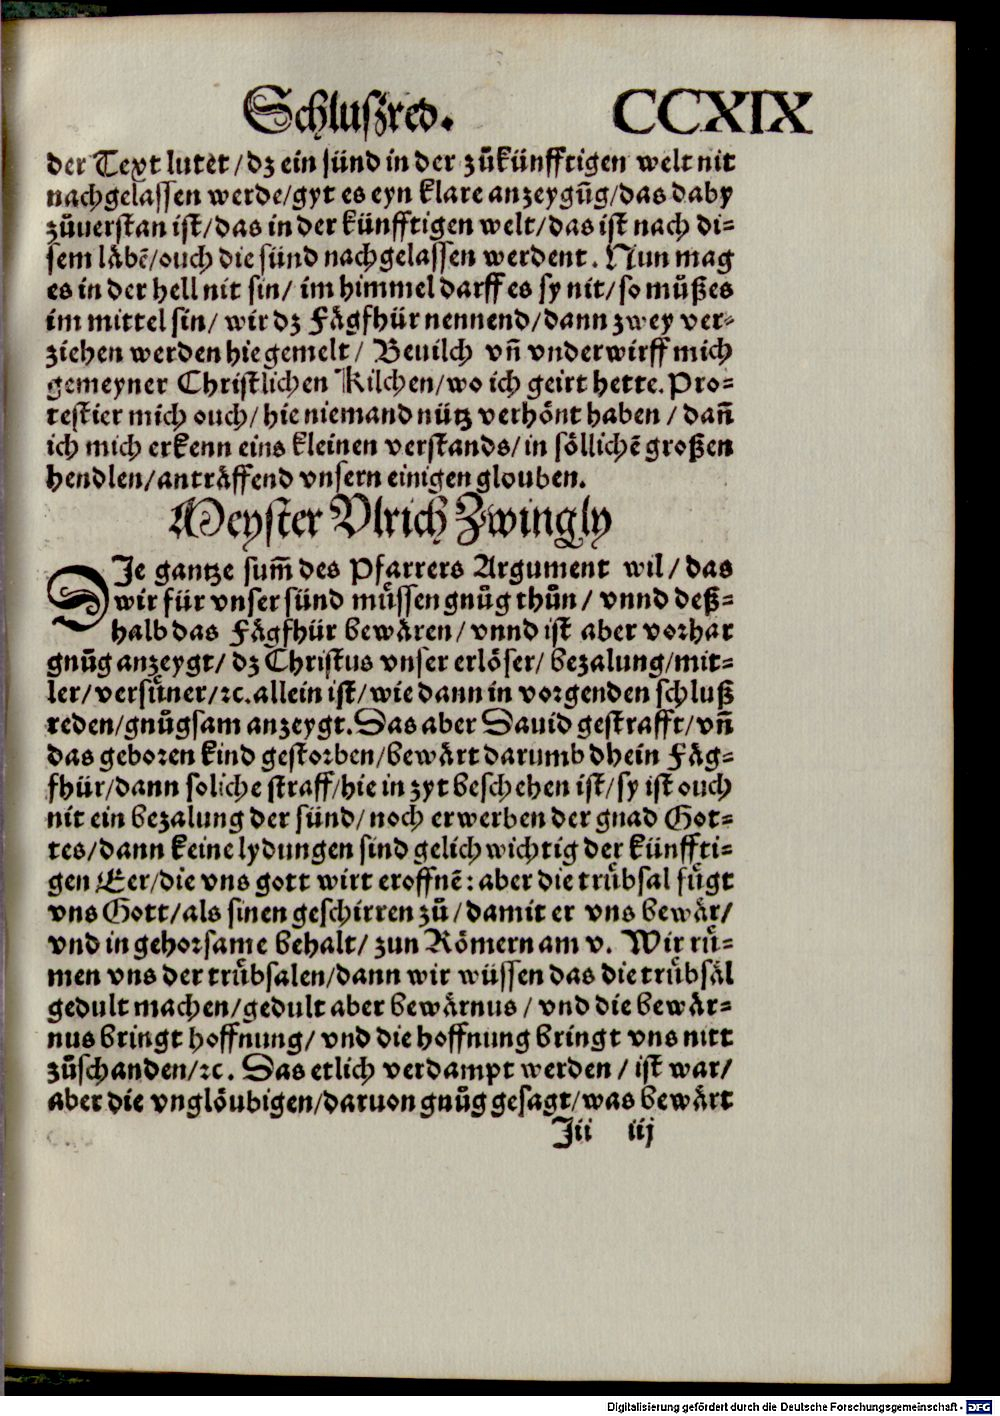 Schlußred. CCXIX
der Text lutet/dz ein sünd in der zůkünfftigen welt nit
nachgelassen werde/gyt es eyn klare anzeygũg/das daby
zůuerstan ist/das in der künfftigen welt/das ist nach di⸗
sem läbẽ/ouch die sünd nachgelassen werdent. Nun mag
es in der hell nit sin/ im himmel darff es sy nit/so můßes
im mittel sin/ wir dz Fägfhür nennend/dann zwey ver⸗
ziehen werden hie gemelt/ Beuilch vñ vnderwirff mich
gemeyner Christlichen Kilchen/wo ich geirt hette. Pro⸗
testier mich ouch/hie niemand nütz verhönt haben/dañ
ich mich erkenn eins kleinen verstands/in söllichẽ großen
hendlen/anträffend vnsern einigen glouben.
Meyster Vlrich Zwingly
DJe gantze sum̃ des Pfarrers Argument wil/das
wir für vnser sünd müssen gnůg thůn/ vnnd deß⸗
halb das Fägfhür bewären/vnnd ist aber vorhar
gnůg anzeygt/ dz Christus vnser erlöser/bezalung/mit⸗
ler/versüner/ꝛc.allein ist/wie dann in vorgenden schluß
reden/gnůgsam anzeygt. Das aber Dauid gestrafft/vñ
das geboren kind gestorben/bewärt darumb dhein Fäg⸗
fhür/dann soliche straff/hie in zyt beschehen ist/sy ist ouch
nit ein bezalung der sünd/noch erwerben der gnad Got⸗
tes/dann keine lydungen sind gelich wichtig der künffti⸗
gen Eer/die vns gott wirt eroffnẽ: aber die trůbsal fügt
vns Gott/als sinen geschirren zů/damit er vns bewär/
vnd in gehorsame behalt/ zun Römern am v. Wir rů⸗
men vns der trůbsalen/dann wir wüssen das die trůbsäl
gedult machen/gedult aber bewärnus/ vnd die bewär⸗
nus bringt hoffnung/ vnd die hoffnung bringt vns nitt
zůschanden/ꝛc. Das etlich verdampt werden/ist war/
aber die vnglöubigen/daruon gnůg gesagt/was bewärt
Jii iij
Digitalisierung gefördert durch die Deutsche Forschungsgemeinschaft - DFG